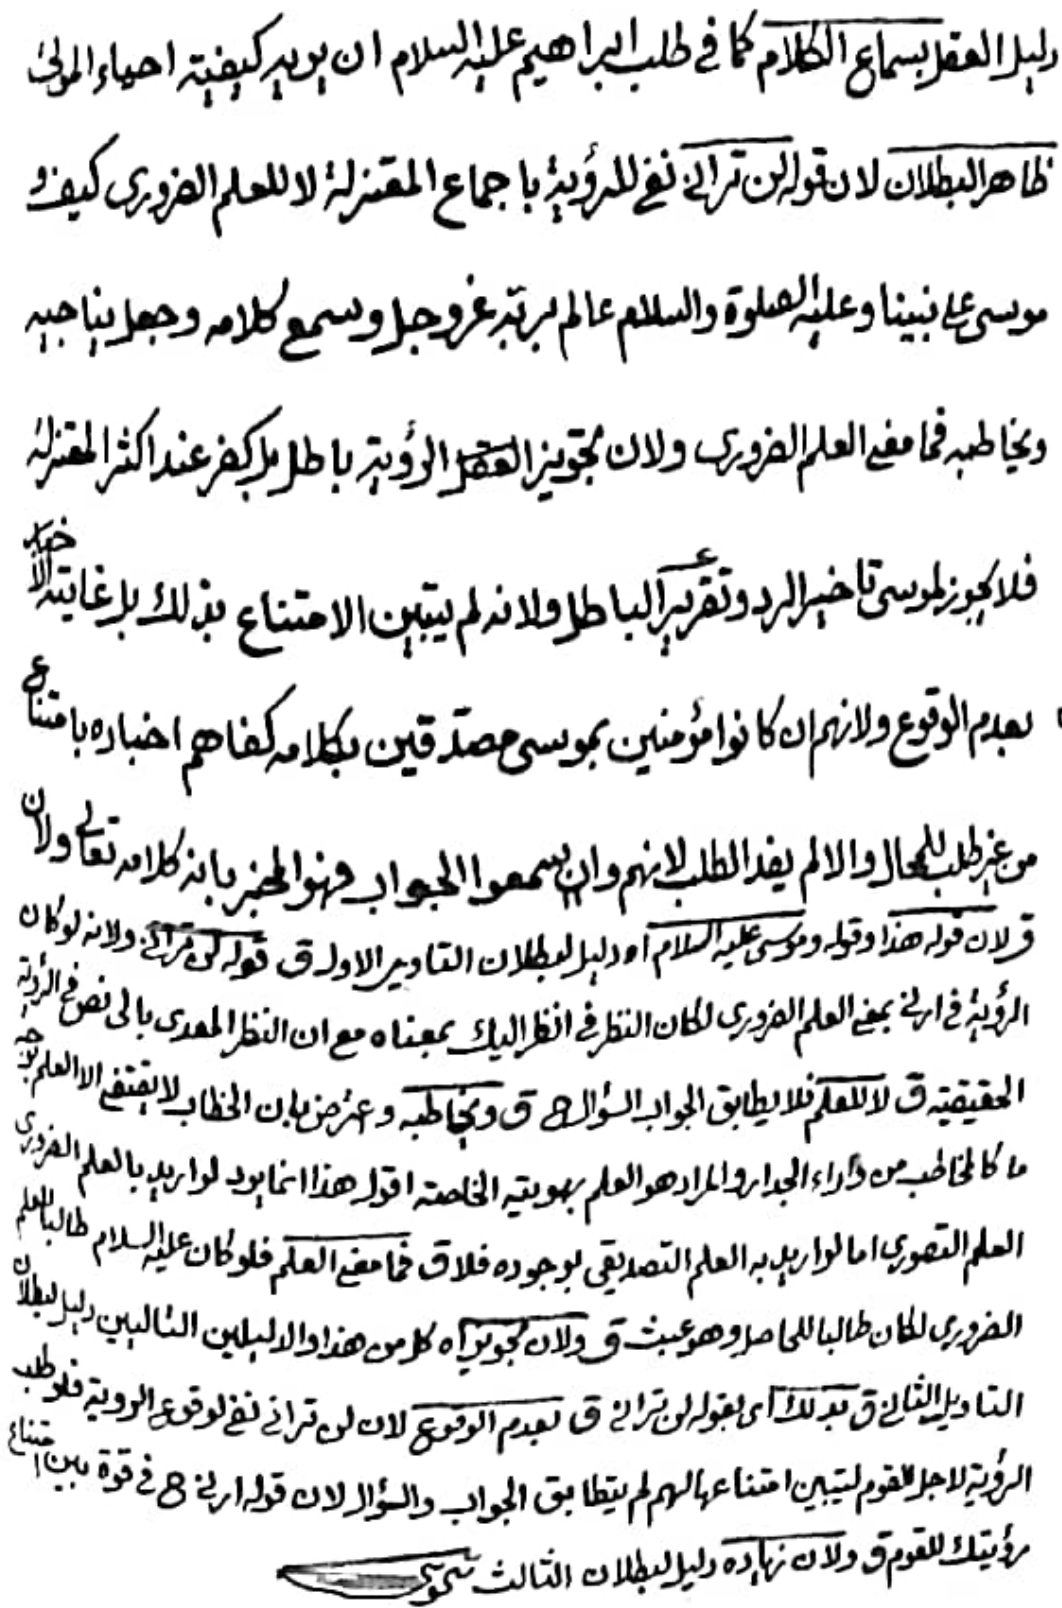 دليل العقل بسماع الكلام كما في طلب ابراهيم عليه السلام ان يريه كيفية احياء الموتى
ظاهر البطلان لان قوله لن تراني نفي للرؤية باجماع المعتزلة لا للعلم الضروري كيف و
موسى على نبينا وعليه الصلوة والسلام عالم بربه عز وجل وسمع كلامه وجعل يناجيه
ويخاطبه فما معنى العلم الضروري ولان تجويز العقل الرؤية باطل بل كفر عند اكثر المعتزلة
فلا يجوز لموسى تاخير الرد وتقرير الباطل ولانه لم يتبين الامتناع بذلك بل غايته الاخبار
بعدم الوقوع ولانهم ان كانوا مؤمنين بموسى مصدّقين بكلامه كفاهم اخباره بامتناع
من غير طلب للمحال والا لم يفد الطلب لانهم وان سمعوا الجواب فهو المخبر بانه كلامه تعالى ولان
ق لان قوله هذا وقوله وموسى عليه السلام اه دليل لبطلان التاويل الاول ق قوله لن تراني ولانه لو كان
الرؤية في ارني بمعنى العلم الضروري لكان النظر في انظر اليك بمعناه مع ان النظر المعدى بالى نص في الرؤية
الحقيقية ق لا للعلم فلا يطابق الجواب السؤال ح ق ويخاطبه وعترض بان الخطاب لا يقتضي الا العلم بوجه
ما كالمخاطب من وراء الجدار والمراد هو العلم بهويته الخاصة اقول هذا انما يرد لو اريد بالعلم الضروري
العلم التصوري اما لو اريد به العلم التصديقي بوجوده فلا ق فما معنى العلم فلو كان عليه السلام طالبا للعلم
الضروري لكان طالبا للحاصل وهو عبث ق ولان تجويز اه كل من هذا والدليلين التاليين دليل لبطلان
التاويل الثاني ق بذلك اى بقوله لن تراني ق بعدم الوقوع لان لن تراني نفي لوقوع الروية فلو طلب
الرؤية لاجل القوم ليتبين امتناعها لهم لم يتطابق الجواب والسؤال لان قوله ارني ح في قوة بين امتناع
رؤيتك للقوم ق ولان دليل لبطلان الثالث